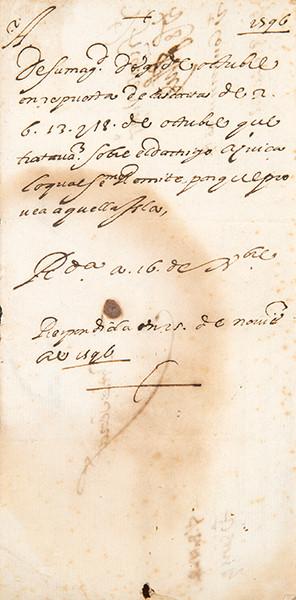 1596
De su magd. De de octubre
en respuesta de las de 2.
6. 13. y 18. de octubre que
tratava. sobre el a Iviça
lo qual se me Remite, porque pro
vea aquella Isla,
Rda a. 16. de Nbre
Respondida en 25. de novie
de 1596